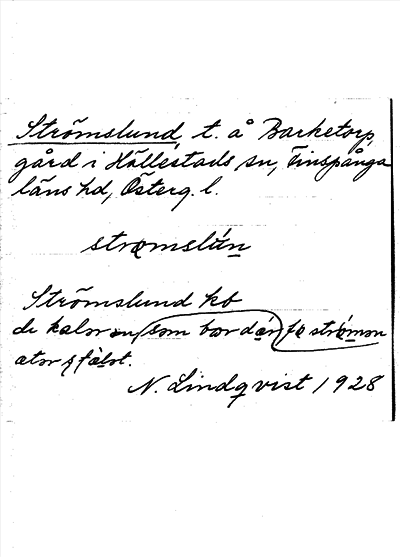 Strömslund, t. å Barketorp,
gård i Hällestads sn, Finspånga
läns hd, Österg. l.
strömslún
Strömslund kb
de kalar an som bor dän fö strömsn
ator
N. Lindqvist 1928